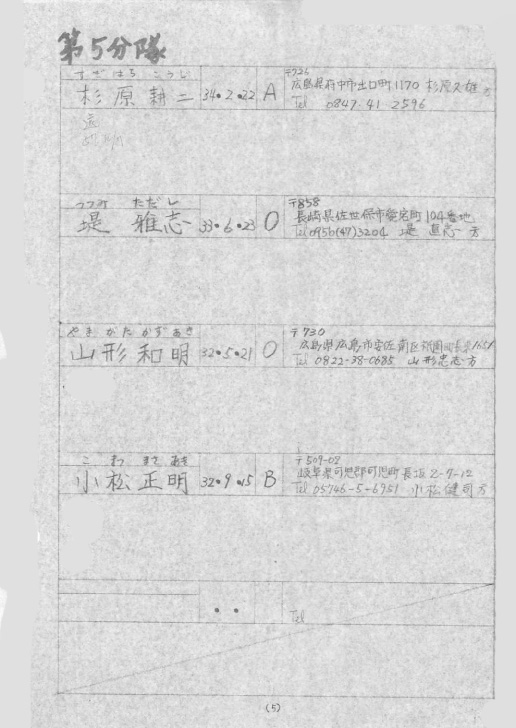 第5分隊
すぎはら こうじ
杉原 耕二 34・2・22 A
〒726
広島県府中市土口町1170 杉原久雄方
Tel 0847 41 2596
つつみ ただし
堤 雅志 33・6・23 O
〒858
長崎県佐世保市 町104番地
Tel 0956(47)3204 堤 直志 方
やまがたかずあき
山形和明 32・5・21 O
〒730
広島県広島市安佐南区祇園町
Tel 0822-38-0685 山形忠志方
こまつ まさあき
小松正明 32・9・15 B
〒509-02
岐阜県可児郡可児町長坂2-7-12
Tel 05746-5-6951 小松健司方
・ ・
Tel
(5)